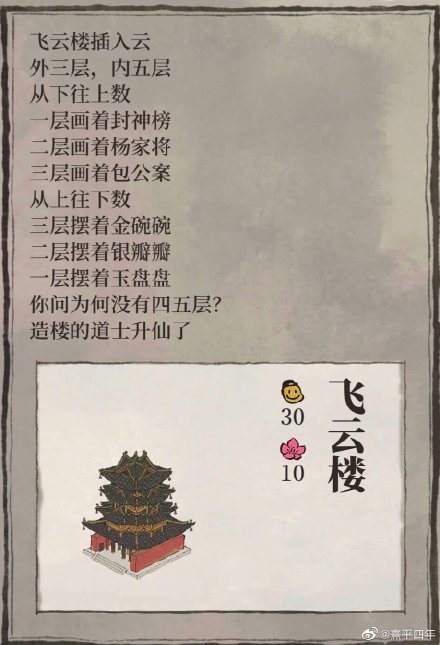 飞云楼插入云
外三层，内五层
从下往上数
一层画着封神榜
二层画着杨家将
三层画着包公案
从上往下数
三层摆着金碗碗
二层摆着银瓣瓣
一层摆着玉盘盘
你问为何没有四五层？
造楼的道士升仙了
飞云楼
30
10
@熹平四年